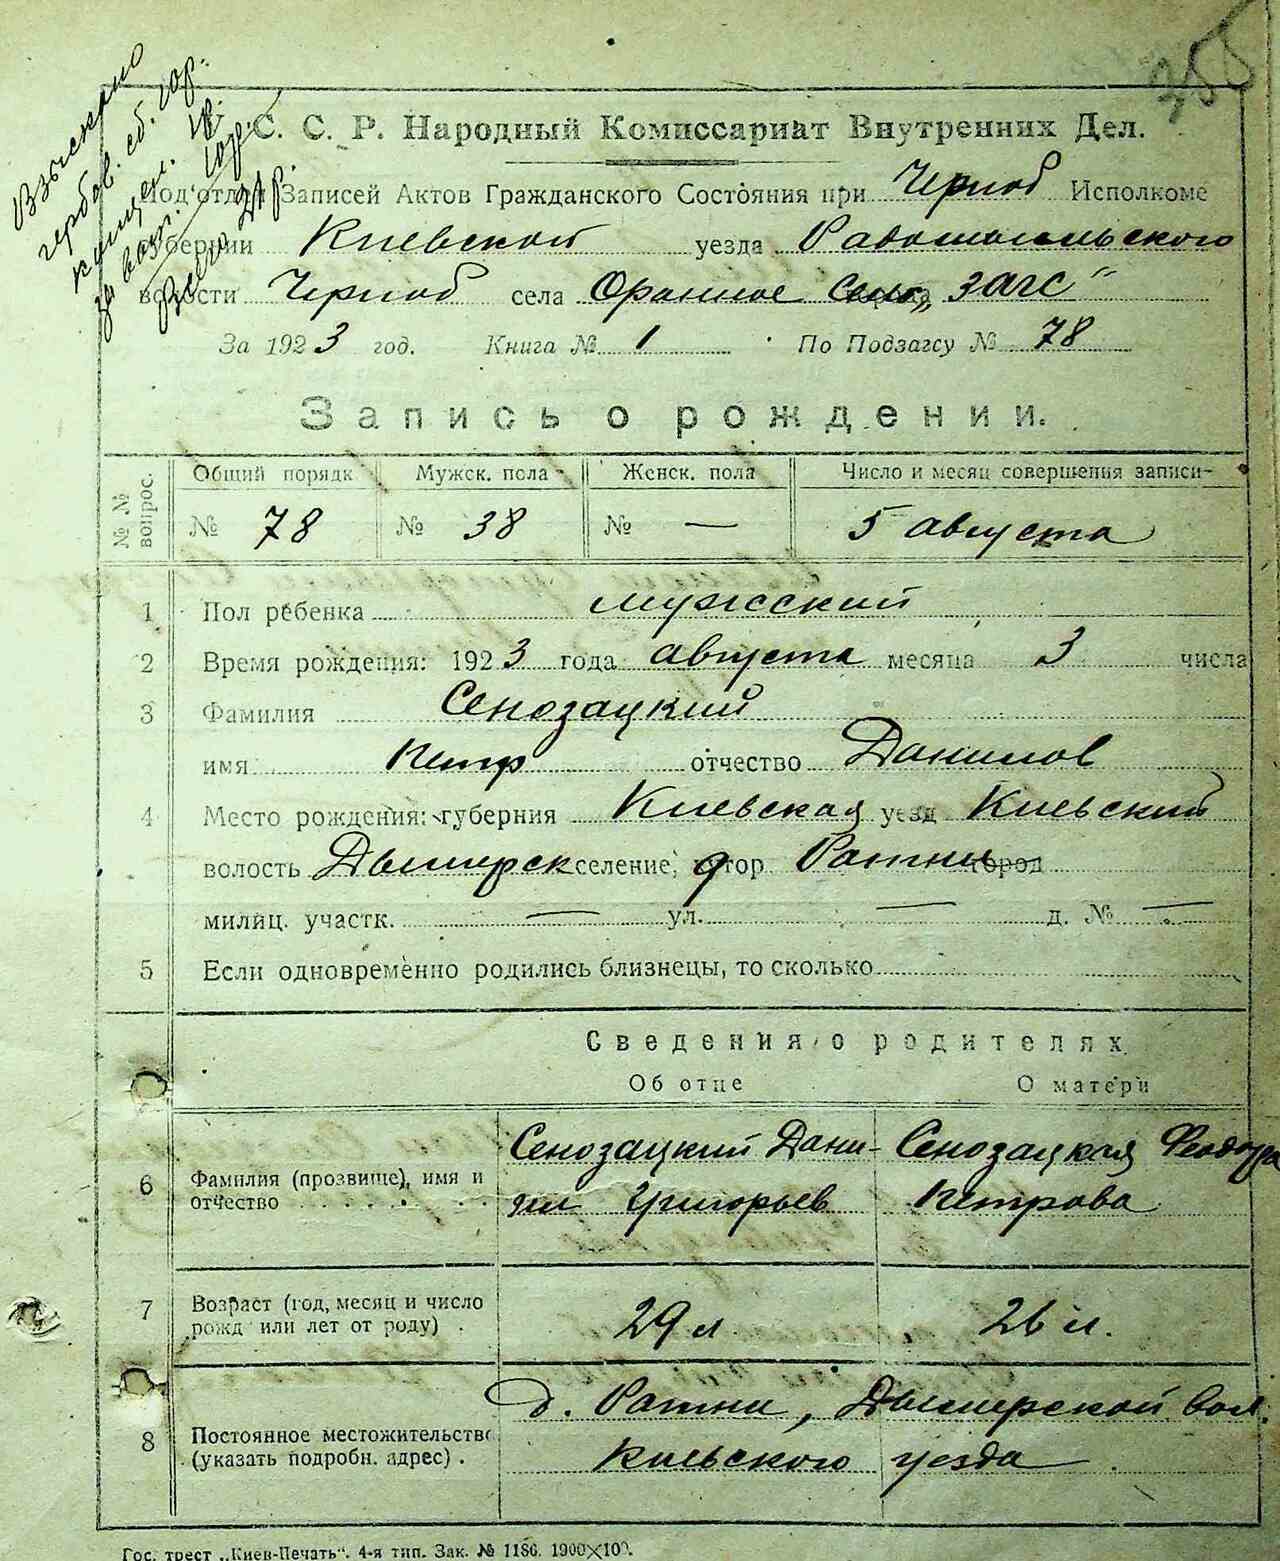 355
Взыскано
гербов. сб. 10р.
канцел. 1р.
за бол. 10р.
Всего 21р.
С. С. Р. Народный Комиссариат Внутренних Дел.
Подотдел Записей Актов Гражданского Состояния при Черноб Исполкоме
губернии Киевской уезда Радомысльского
волости Черноб села Оранное Сель „ЗАГС“
За 1923 год. Книга № 1 По Подзагсу № 78
Запись о рождении.
№ № вопрос. Общий порядк Мужск. пола Женск. пола Число и месяц совершения записи
№ 78 № 38 № — 5 августа
1 Пол ребенка мужсский
2 Время рождения: 1923 года августа месяца 3 числа
3 Фамилия Сенозацкий
имя Петр отчество Данилов
4 Место рождения: губерния Киевская уезд Киевский
волость Дымерск селение, хутор Ратни город
милиц. участк. — ул. — д. № —
5 Если одновременно родились близнецы, то сколько
Сведения о родителях
Об отце О матери
6 Фамилия (прозвище), имя и отчество
Сенозацкий Дани- Сенозацкая Феодора
ил Григорьев Петрова
7 Возраст (год, месяц и число
рожд или лет от роду) . 29 л 26 л.
8 Постоянное местожительство
(указать подробн. адрес) .
д. Ратни, Дымерской вол.
Киевского уезда
Гос. трест „Киев-Печать“. 4-я тип. Зак. № 1186. 1900×100.